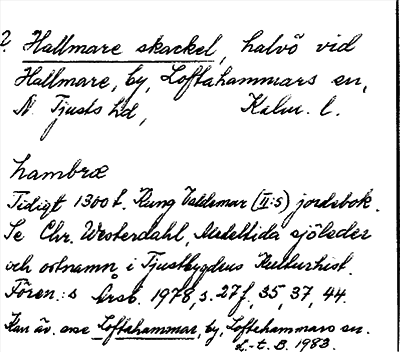 2. Hallmare skackel, halvö vid
Hallmare, by, Loftahammars sn,
N. Tjusts hd, Kalm. l.
hambræ
Tidigt 1300 t. Kung Valdemar (II:s) jordebok.
Se Chr. Westerdahl, Medeltida sjöleder
och ortnamn, i Tjustbygdens Kulturhist.
Fören:s Årsb. 1978, s. 27f, 35, 37, 44.
Kan äv. avse Loftahammar, by, Loftahammars sn.
L-t. B. 1983.